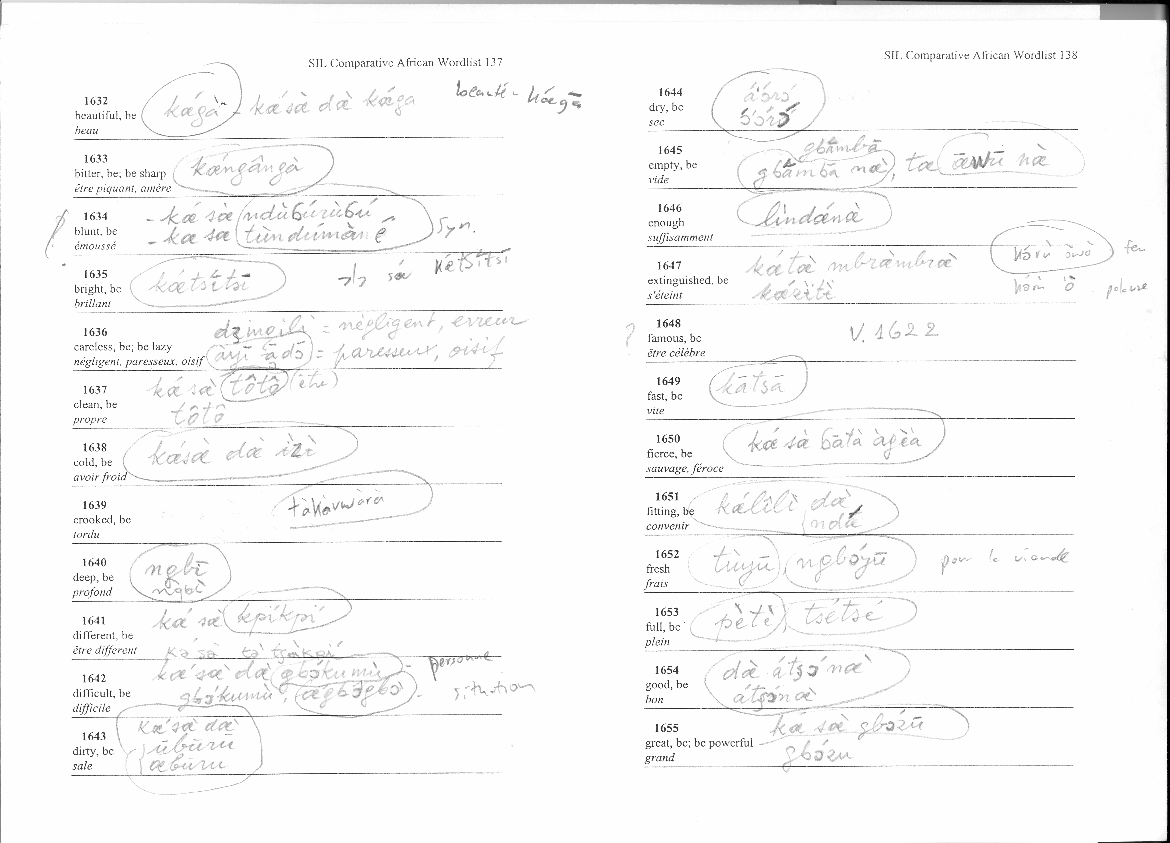 SIL Comparative African Wordlist 137
1632
beautiful, be
beau
kǽgà - kǽsà dæ̀ kǽga
beauté - kǽgā
1633
bitter, be; be sharp
être piquant, amère
kǽngângà
1634
blunt, be
émoussé
- kǽ sæ̀ ndùɓúrùɓú
- kæ sæ tùndúmànɛ
Syn.
1635
bright, be
brillant
kǽtsítsí
1636
careless, be; be lazy
négligent, paresseux, oisif
= négligent, erreur
= paresseux, oisif
1637
clean, be
propre
kǽ sæ̀ tôtô (être)
tôtô
1638
cold, be
avoir froid
kǽsæ̀ dæ̀ ìzì
1639
crooked, be
tordu
1640
deep, be
profond
ngbī
ngbì
1641
different, be
être différent
kǽ sæ̀ kpíkpí
1642
difficult, be
difficile
kǽ sæ̀ dæ̀ gbɔ́kumù - personne
gbɔ́kumù, ægbɔ̀gbɔ̀ - situation
1643
dirty, be
sale
kǽ sæ̀ dæ̀
ūbùrū
æbùru
SIL Comparative African Wordlist 138
1644
dry, be
sec
1645
empty, be
vide
gbāmbā
gbāmbā næ̀, tæ āwū næ̀
1646
enough
suffisamment
lindǽnæ̀
1647
extinguished, be
s'éteint
kǽtæ̀ mbræmbræ
kǽzìtì
feu
1648
famous, be
être célèbre
? V. 1622
1649
fast, be
vite
kātsā
1650
fierce, be
sauvage, féroce
kǽ sæ̀ bātà àgèà
1651
fitting, be
convenir
kǽlîlì dæ̀
ndæ
1652
fresh
frais
tùyū, ngbɔ́yū pour la viande
1653
full, be
plein
pètè, tsétsé
1654
good, be
bon
dæ̀ átʂɔ́næ̀
átʂɔ́næ̀
1655
great, be; be powerful
grand
kǽ sæ̀ gbɔ́zū
gbɔ́zu